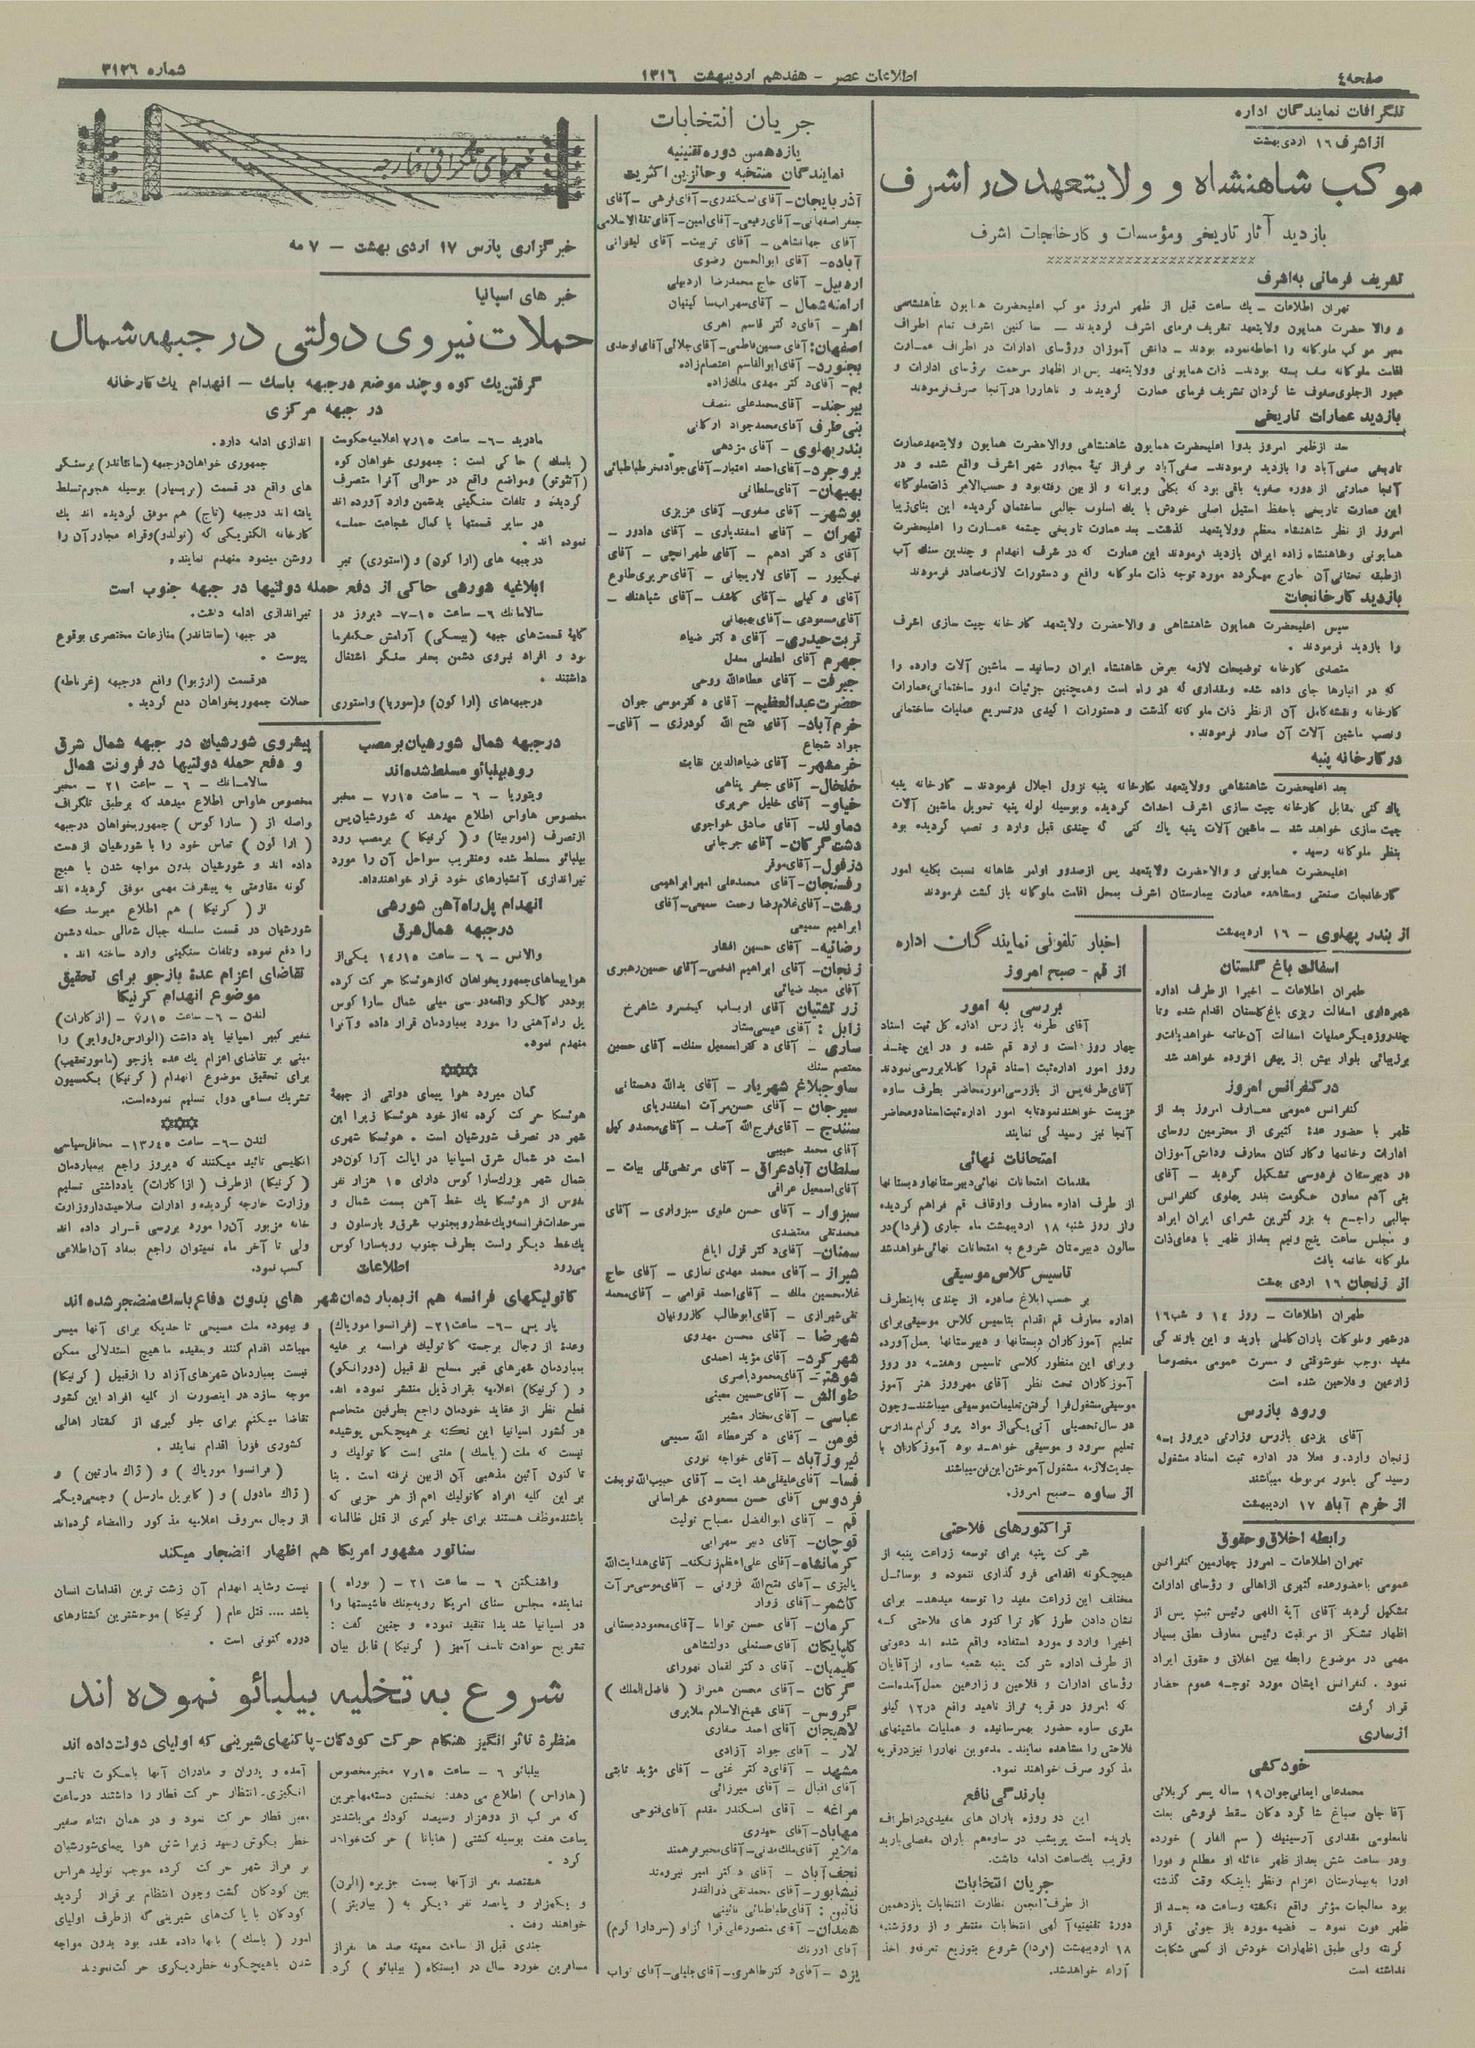 صفحه ٤
اطلاعات عصر - هفدهم اردیبهشت ۱۳۱٦
شماره ۳۱۲٦
تلگرافات نمایندگان اداره
از اشرف ۱٦ اردی بهشت
موکب شاهنشاه و ولایتعهد در اشرف
بازدید آثار تاریخی و مؤسسات و کارخانجات اشرف
تشریف فرمائی به اشرف
تهران اطلاعات - یك ساعت قبل از ظهر امروز موکب اعلیحضرت همایون شاهنشاهی
و والا حضرت همایون ولایتعهد تشریف فرمای اشرف گردیدند - ساکنین اشرف تمام اطراف
معبر موکب ملوکانه را احاطه نموده بودند - دانش آموزان ورؤسای ادارات در اطراف عمارت
اقامت ملوکانه صف بسته بودند- ذات همایونی وولایتعهد پس از اظهار مرحمت برؤسای ادارات و
عبور ازجلوی صفوف شاگردان تشریف فرمای عمارت گردیدند و ناهار را در آنجا صرف فرمودند
بازدید عمارات تاریخی
بعد ازظهر امروز بدوا اعلیحضرت همایون شاهنشاهی ووالاحضرت همایون ولایتعهد عمارت
تاریخی صفی آباد را بازدید فرمودند- صفی آباد بر فراز تپۀ مجاور شهر اشرف واقع شده و در
آنجا عمارتی از دوره صفویه باقی بود که بکلی ویرانه و از بین رفته بود و حسب الامر ذات ملوکانه
این عمارت تاریخی باحفظ استیل اصلی خودش با یك اسلوب جالبی ساختمان گردیده این بنای زیبا
امروز از نظر شاهنشاه معظم وولایتعهد گذشت- بعد عمارت تاریخی چشمه عمارت را اعلیحضرت
همایونی و شاهنشاه زاده ایران بازدید فرمودند این عمارت که در شرف انهدام و چندین سنك آب
ازطبقه تحتانی آن خارج میگردد مورد توجه ذات ملوکانه واقع و دستورات لازمه صادر فرمودند
بازدید کارخانجات
سپس اعلیحضرت همایون شاهنشاهی و والاحضرت ولایتعهد کارخانه چیت سازی اشرف
را بازدید فرمودند .
متصدی کارخانه توضیحات لازمه بعرض شاهنشاه ایران رسانید - ماشین آلات وارده را
که در انبارها جای داده شده ومقداری که در راه است وهمچنین جزئیات امور ساختمانی، عمارات
کارخانه و نقشه کامل آن ازنظر ذات ملوکانه گذشت و دستورات اکیدی در تسریع عملیات ساختمانی
ونصب ماشین آلات آن صادر فرمودند.
در کارخانه پنبه
بعد اعلیحضرت شاهنشاهی وولایتعهد بکارخانه پنبه نزول اجلال فرمودند - کارخانه پنبه
پاك کنی مقابل کارخانه چیت سازی اشرف احداث گردیده وبوسیله لوله پنبه تحویل ماشین آلات
چیت سازی خواهد شد - ماشین آلات پنبه پاك کنی که چندی قبل وارد و نصب گردیده بود
بنظر ملوکانه رسید .
اعلیحضرت همایونی و والاحضرت ولایتعهد پس ازصدور اوامر شاهانه نسبت بکلیه امور
کارخانجات صنعتی ومشاهده عمارت بیمارستان اشرف بمحل اقامت ملوکانه بازگشت فرمودند
از بندر پهلوی - ۱٦ اردیبهشت
اسفالت باغ گلستان
طهران اطلاعات - اخیرا از طرف اداره
شهرداری اسفالت ریزی باغ گلستان اقدام شده وتا
چند روز دیگر عملیات اسفالت آن خاتمه خواهد یافت و
برزیبائی بلوار بیش از پیش افزوده خواهد شد
در کنفرانس امروز
کنفرانس عمومی معارف امروز بعد از
ظهر با حضور عدۀ کثیری از محترمین روسای
ادارات وخانمها وکارکنان معارف ودانش آموزان
در دبیرستان فردوسی تشکیل گردید - آقای
بنی آدم معاون حکومت بندر پهلوی کنفرانس
جالبی راجع به بزرگترین شعرای ایران ایراد
و مجلس ساعت پنج ونیم بعداز ظهر با دعای ذات
ملوکانه خاتمه یافت
از زنجان ۱٦ اردی بهشت
طهران اطلاعات - روز ١٤ و شب ١٦
در شهر وبلوکات باران کاملی بارید و این بارندگی
مفید موجب خوشوقتی و مسرت عمومی مخصوصا
زارعین و فلاحین شده است
ورود بازرس
آقای یزدی بازرس وزارتی دیروز به
زنجان وارد و فعلا در اداره ثبت اسناد مشغول
رسیدگی بامور مربوطه میباشند
از خرم آباد ۱۷ اردیبهشت
رابطه اخلاق و حقوق
تهران اطلاعات - امروز چهارمین کنفرانس
عمومی باحضور عده کثیری ازاهالی و رؤسای ادارات
تشکیل گردید آقای آیة اللهی رئیس ثبت پس از
اظهار تشکر از مراقبت رئیس معارف نطق بسیار
مهمی در موضوع رابطه بین اخلاق و حقوق ایراد
نمود . کنفرانس ایشان مورد توجه عموم حضار
قرار گرفت
از ساری
خود کشی
محمد علی ایمانی جوان ١٩ ساله پسر کربلائی
آقاجان صباغ شاگرد دکان سقط فروشی بعلت
نامعلومی مقداری آرسنیك ( سم الفار ) خورده
ودر ساعت شش بعداز ظهر عائله او مطلع و فورا
اورا به بیمارستان اعزام ونظر باینکه وقت گذشته
بود معالجات مؤثر واقع نگشته وساعت ده بعد از
ظهر فوت نمود - قضیه مورد بازجوئی قرار
گرفته ولی طبق اظهارات خودش از کسی شکایت
نداشته است
اخبار تلفونی نمایندگان اداره
از قم - صبح امروز
بررسی به امور
آقای طرفه بازرس اداره کل ثبت اسناد
چهار روز است وارد قم شده و در این چند
روز امور اداره ثبت اسناد قم را کاملا بررسی نمودند
آقای طرفه پس از بازرسی امور محاضر بطرف ساوه
عزیمت خواهند نمود تا به امور اداره ثبت اسناد و محاضر
آنجا نیز رسیدگی نمایند
امتحانات نهائی
مقدمات امتحانات نهائی دبیرستانها و دبستانها
از طرف اداره معارف واوقاف قم فراهم گردیده
واز روز شنبه ۱۸ اردیبهشت ماه جاری (فردا) در
سالون دبیرستان شروع به امتحانات نهائی خواهد شد
تاسیس کلاس موسیقی
بر حسب ابلاغ صادره از چندی به اینطرف
اداره معارف قم اقدام بتاسیس کلاس موسیقی برای
تعلیم آموزگاران دبستانها و دبیرستانها بعمل آورده
وبرای این منظور کلاسی تاسیس وهفته دو روز
آموزگاران تحت نظر آقای مهرورز هنر آموز
موسیقی مشغول فرا گرفتن تعلیمات موسیقی میباشند - وچون
در سال تحصیلی آتی یکی از مواد پروگرام مدارس
تعلیم سرود و موسیقی خواهد بود آموزگاران با
جدیت لازمه مشغول آموختن این فن میباشند
از ساوه - صبح امروز.
تراکتورهای فلاحتی
شرکت پنبه برای توسعه زراعت پنبه از
هیچگونه اقدامی فروگذاری ننموده و بوسائل
مختلف این زراعت مفید را توسعه میدهد- برای
نشان دادن طرز کار تراکتور های فلاحتی که
اخیرا وارد و مورد استفاده واقع شده اند دعوتی
از طرف اداره شرکت پنبه شعبه ساوه از آقایان
رؤسای ادارات و فلاحین و زارعین بعمل آمده است
که امروز دو قریه ممراز ناهید واقع در ١٢ کیلو
متری ساوه حضور بهمرسانیده و عملیات ماشینهای
فلاحتی را مشاهده نمایند. مدعوین نهار را نیز در قریه
مذکور صرف خواهند نمود.
بارندگی نافع
این دو روزه باران های مفیدی در اطراف
باریده است پریشب در ساوه هم باران مفصلی بارید
وقریب یك ساعت ادامه داشت.
جریان انتخابات
از طرف انجمن نظارت انتخابات یازدهمین
دورۀ تقنینیه آگهی انتخابات منتشر و از روز شنبه
۱۸ اردیبهشت (فردا) شروع بتوزیع تعرفه و اخذ
آراء خواهد شد.
جریان انتخابات
یازدهمین دوره تقنینیه
نمایندگان منتخبه و حائزین اکثریت
آذربایجان- آقای اسکندری- آقای فرهی - آقای
جعفر اصفهانی- آقای رفیعی- آقای امین- آقای ثقة الاسلامی
آقای جهانشاهی - آقای تربیت- آقای لیقوانی
آباده- آقای ابوالحسن رضوی
اردبیل- آقای حاج محمدرضا اردبیلی
ارامنه شمال - آقای سهراب ساکینیان
اهر- آقای دکتر قاسم اهری
اصفهان: آقای حسین فاطمی- آقای جلالی آقای اوحدی
بجنورد- آقای ابوالقاسم اعتصام زاده
بم- آقای دکتر مهدی ملك زاده
بیرجند- آقای محمد علی منصف
بنی طرف آقای محمد جواد ارکانی
بندر پهلوی- آقای مژدهی
بروجرد- آقای احمد اعتبار- آقای جواد فخر طباطبائی
بهبهان- آقای سلطانی
بوشهر- آقای صفوی- آقای عزیزی
تهران - آقای اسفندیاری - آقای دادور -
آقای دکتر ادهم - آقای طهرانچی - آقای
نمکپور - آقای لاریجانی - آقای حریری طلوع
آقای وکیلی - آقای کاشف - آقای شباهنك -
آقای مسعودی - آقای بهبهانی
تربت حیدری- آقای دکتر ضیاء
جهرم آقای لطفعلی معدل
جیرفت- آقای عطاءالله روحی
حضرت عبدالعظیم- آقای دکتر موسی جوان
خرم آباد- آقای فتح الله گودرزی - آقای-
جواد شجاع
خرمشهر- آقای ضیاءالدین نقابت
خلخال- آقای جعفر پناهی
خیاو- آقای خلیل حریری
دماوند- آقای صادق خواجوی
دشت گرگان- آقای جرجانی
دزفول- آقای موقر
رفسنجان- آقای محمد علی امیر ابراهیمی
رشت- آقای غلام رضا رحمت سمیعی- آقای
ابراهیم سمیعی
رضائیه- آقای حسین افشار
زنجان- آقای ابراهیم افخمی- آقای حسین رهبری
آقای مجد ضیائی
زرتشتیان آقای ارباب کیخسرو شاهرخ
زابل : آقای عیسی ستار
ساری- آقای دکتر اسمعیل سنك- آقای حسین
معتصم سنك
ساوجبلاغ شهریار - آقای یدالله دهستانی
سیرجان- آقای حسن مرآت اسفندریای
سنندج - آقای فرج الله آصف - آقای محمد وکیل
آقای محمد حبیبی
سلطان آباد عراق - آقای مرتضی قلی بیات -
آقای اسمعیل عراقی
سبزوار - آقای حسن علوی سبزواری - آقای
محمد تقی معتضدی
سمنان- آقای دکتر قزل ایاغ
شیراز - آقای محمد مهدی نمازی - آقای حاج
غلامحسین ملك - آقای احمد قوامی - آقای محمد
تقی شیرازی - آقای ابوطالب کازرونیان
شهرضا - آقای محسن مهدوی
شهرکرد- آقای مؤید احمدی
شوشتر- آقای محمود ناصری
طوالش - آقای حسین معینی
عباسی - آقای مختار مشیر
فومن - آقای دکتر عطاء الله سمیعی
فیروزآباد- آقای خواجه نوری
فسا- آقای علیقلی هدایت - آقای حبیب الله نوبخت
فردوس آقای حسن مسعودی خراسانی
قم - آقای ابوالفضل مصباح تولیت
قوچان- آقای دبیر سهرابی
کرمانشاه- آقای علی اعظم زنگنه- آقای هدایت الله
پالیزی- آقای فتح الله قزونی - آقای موسی مرآت
کاشمر- آقای زوار
کرمان- آقای حسن توانا - آقای محمود دبستانی
گلپایگان آقای حسنعلی دولتشاهی
کلیمیان- آقای دکتر لقمان نهورای
گرگان- آقای محسن همراز ( فاضل الملك )
گروس- آقای شیخ الاسلام ملایری
لاهیجان آقای احمد صفاری
لار - آقای جواد آزادی
مشهد- آقای دکتر غنی- آقای مؤید ثابتی
آقای اقبال - آقای میرزائی
مراغه - آقای اسکندر مقدم آقای فتوحی
مهاباد- آقای حیدری
ملایر آقای ملك مدنی- آقای مخبر فرهمند
نجف آباد - آقای دکتر امیر نیرومند
نیشابور- آقای محمد تقی ذوالقدر
نائین : آقای طباطبائی نائینی
همدان- آقای منصور علی قراگزلو (سردار اکرم)
آقای اورنك
یزد - آقای دکتر طاهری- آقای جلیلی- آقای نواب
خبرهای تلگرافی خارجه
خبرگزاری پارس ۱۷ اردی بهشت - ۷ مه
خبر های اسپانیا
حملات نیروی دولتی در جبهه شمال
گرفتن یك کوه و چند موضع در جبهه باسك - انهدام یك کارخانه
در جبهه مرکزی
مادرید -٦- ساعت ٧ر١٥ اعلامیه حکومت
( باسك ) حاکی است : جمهوری خواهان کوه
ومواضع واقع در حوالی آنرا متصرف
گردیده و تلفات سنگینی بدشمن وارد آورده اند
در سایر قسمتها با کمال شجاعت حمله
نموده اند .
درجبهه های (اراگون) و (استوری) تیر
اندازی ادامه دارد.
جمهوری خواهان درجبهه (سانتاندر) بر سنگر
های واقع در قسمت (بریسیار) بوسیله هجوم تسلط
یافته اند درجبهه (تاج) هم موفق گردیده اند یك
کارخانه الکتریکی که (تولدو) وقراء مجاور آن را
روشن مینمود منهدم نمایند.
ابلاغیه شورشی حاکی از دفع حمله دولتیها در جبهه جنوب است
سالامانك ٦- ساعت ١٥-٧- دیروز در
کلیۀ قسمت های جبهه (بیسکی) آرامش حکمفرما
بود و افراد نیروی دشمن بحفر سنگر اشتغال
داشتند .
درجبهه های (اراگون) و (سوریا) واستوری
تیراندازی ادامه داشت.
در جبهه (سانتاندر) منازعات مختصری بوقوع
پیوست .
درقسمت (ارژیوا) واقع درجبهه (غرناطه)
حملات جمهوریخواهان دفع گردید .
در جبهه شمال شورشیان بر مصب
رود بیلبائو مسلط شده اند
ویتوریا - ٦ - ساعت ٧ر١٥ - مخبر
مخصوص هاواس اطلاع میدهد که شورشیان پس
ازتصرف (اموریبتا) و ( کرنیکا ) برمصب رود
بیلبائو مسلط شده وعنقریب سواحل آن را مورد
تیراندازی آتشبارهای خود قرار خواهند داد.
انهدام پل راه آهن شورشی
در جبهه شمال شرق
والانس - ٦ - ساعت ١٤ر١٥ یکی از
هواپیماهای جمهوریخواهان که از هوئسکا حرکت کرده
بود در کالکو واقعه در سی میلی شمال ساراگوس
پل راه آهنی را مورد بمباردمان قرار داده وآنرا
منهدم نمود.
گمان میرود هوا پیمای دولتی از جبهۀ
هوئسکا حرکت کرده نه از خود هوئسکا زیرا این
شهر در تصرف شورشیان است . هوئسکا شهری
است در شمال شرق اسپانیا در ایالت آراگون در
شمال شهر بزرك ساراگوس دارای ١٥ هزار نفر
نفوس از هوئسکا یك خط آهن بسمت شمال و
سرحدات فرانسه ویك خط رو بجنوب شرق و بارسلون و
یك خط دیگر راست بطرف جنوب روبه ساراگوس
می رود
اطلاعات
پیشروی شورشیان در جبهه شمال شرق
و دفع حمله دولتیها در فرونت شمال
سالامانك - ٦ - ساعت ۲۱ - مخبر
مخصوص هاواس اطلاع میدهد که برطبق تلگراف
واصله از ( ساراگوس ) جمهوریخواهان درجبهه
( اراگون ) تماس خود را با شورشیان از دست
داده اند و شورشیان بدون مواجه شدن با هیچ
گونه مقاومتی به پیشرفت مهمی موفق گردیده اند
از ( کرنیکا ) هم اطلاع میرسد که
شورشیان در قسمت سلسله جبال شمالی حمله دشمن
را دفع نموده وتلفات سنگینی وارد ساخته اند .
تقاضای اعزام عدۀ بازجو برای تحقیق
موضوع انهدام کرنیکا
لندن -٦- ساعت ٧ر١٥ - (ازکارات)
سفیر کبیر اسپانیا یاد داشت (الوارس دل وایو) را
مبنی بر تقاضای اعزام یك عده بازجو (مامور تعقیب)
برای تحقیق موضوع انهدام ( کرنیکا ) بکمسیون
تشریك مساعی دول تسلیم نموده است.
لندن -٦- ساعت ١٣ر٤٥- محافل سیاسی
انگلیسی تائید میکنند که دیروز راجع ببمباردمان
( کرنیکا ) ازطرف ( ازاکارات) یادداشتی تسلیم
وزارت خارجه گردیده و ادارات صلاحیت دار وزارت
خانه مزبور آن را مورد بررسی قرار داده اند
ولی تا آخر ماه نمیتوان راجع بمفاد آن اطلاعی
کسب نمود.
کاتولیکهای فرانسه هم از بمباردمان شهر های بدون دفاع باسك منضجر شده اند
پاریس -٦- ساعت ٢١- (فرانسوا موریاك)
وعدۀ از رجال برجسته کاتولیك فرانسه بر علیه
بمباردمان شهرهای غیر مسلح از قبیل (دورانکو)
و ( کرنیکا) اعلامیه بقرار ذیل منتشر نموده اند.
قطع نظر از عقاید خودمان راجع بطرفین متخاصم
در کشور اسپانیا این نکته بر هیچکس پوشیده
نیست که ملت (باسك) ملتی است کاتولیك و
تاکنون آئین مذهبی آن ازبین نرفته است . بنا
بر این کلیه افراد کاتولیك اعم از هر حزبی که
باشند موظف هستند برای جلوگیری از قتل ظالمانه
و بیهوده ملت مسیحی تا حدیکه برای آنها میسر
میباشد اقدام کنند وبعقیده ما هیچ استدلالی ممکن
نیست بمباردمان شهرهای آزاد را ازقبیل (کرنیکا)
موجه سازد در اینصورت از کلیه افراد این کشور
تقاضا میکنم برای جلوگیری از کشتار اهالی
کشوری فورا اقدام نمایند .
( فرانسوا موریاك ) و ( ژاك مارتین ) و
( ژاك مادول ) و ( کابریل مارسل ) وجمعی دیگر
از رجال معروف اعلامیه مذکور را امضاء کرده اند
سناتور مشهور امریکا هم اظهار انضجار میکند
واشنگتن ٦ - ساعت ٢١ - ( بوراه )
نماینده مجلس سنای امریکا رویه جنك فاشیستها را
در اسپانیا شدیدا تنقید نموده و چنین گفت :
تشریح حوادث تاسف آمیز ( گرنیکا ) قابل بیان
نیست وشاید انهدام آن زشت ترین اقدامات انسان
باشد .... قتل عام ( کرنیکا ) موحشترین کشتارهای
دوره کنونی است .
شروع به تخلیه بیلبائو نموده اند
منظرۀ تاثر انگیز هنگام حرکت کودکان- پاکتهای شیرینی که اولیای دولت داده اند
بیلبائو ٦ - ساعت ٧ر١٥ مخبر مخصوص
(هاواس) اطلاع می دهد: نخستین دسته مهاجرین
که مرکب از دوهزار وسیصد کودك می باشند در
ساعت هفت بوسیله کشتی ( هابانا ) حرکت خواهند
کرد .
هشتصد نفر از آنها بسمت جزیره (الرن)
و یکهزار و پانصد نفر دیگر به ( بیاریتز )
خواهند رفت .
چندی قبل از ساعت معینه صد ها نفر از
مسافرین خورد سال در ایستگاه ( بیلبائو ) گرد
آمده و پدران و مادران آنها باسکوت تاثر
انگیزی. انتظار حرکت قطار را داشتند در ساعت
معین قطار حرکت نمود و در همان اثناء صفیر
خطر بگوش رسید زیرا شش هوا پیمای شورشیان
بر فراز شهر حرکت کرده موجب تولید هراس
بین کودکان گشت وچون انتظام برقرار گردید
کودکان با پاکت های شیرینی که ازطرف اولیای
امور ( باسك ) بانها داده شده بود بدون مواجه
شدن باهیچگونه خطر دیگری حرکت نمودند